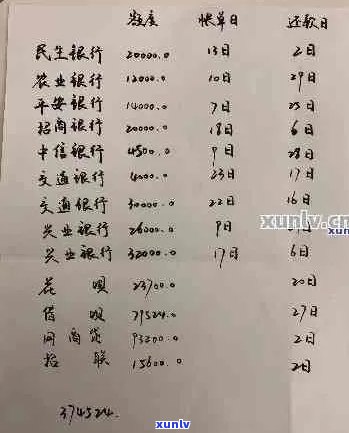 额度 帐单日 还款日
民生银行 20000.0 13日 2日
农业银行 12000.0 10日 29日
平安银行 14000.0 7日 25日
招商银行 20000.0 18日 6日
中信银行 4500.0 9日 28日
交通银行 4000.0 23日 17日
交通银行 30000.0 22日 16日
xunlv.com
兴业银行 26000.0 9日 日
xunlv
兴业银行 32000.0 17日 6日
花呗 23700.0 20日
借呗 79524.0 27日
网商贷 93200.0 2日
招联 15600.0 2日
374524.
xunlv